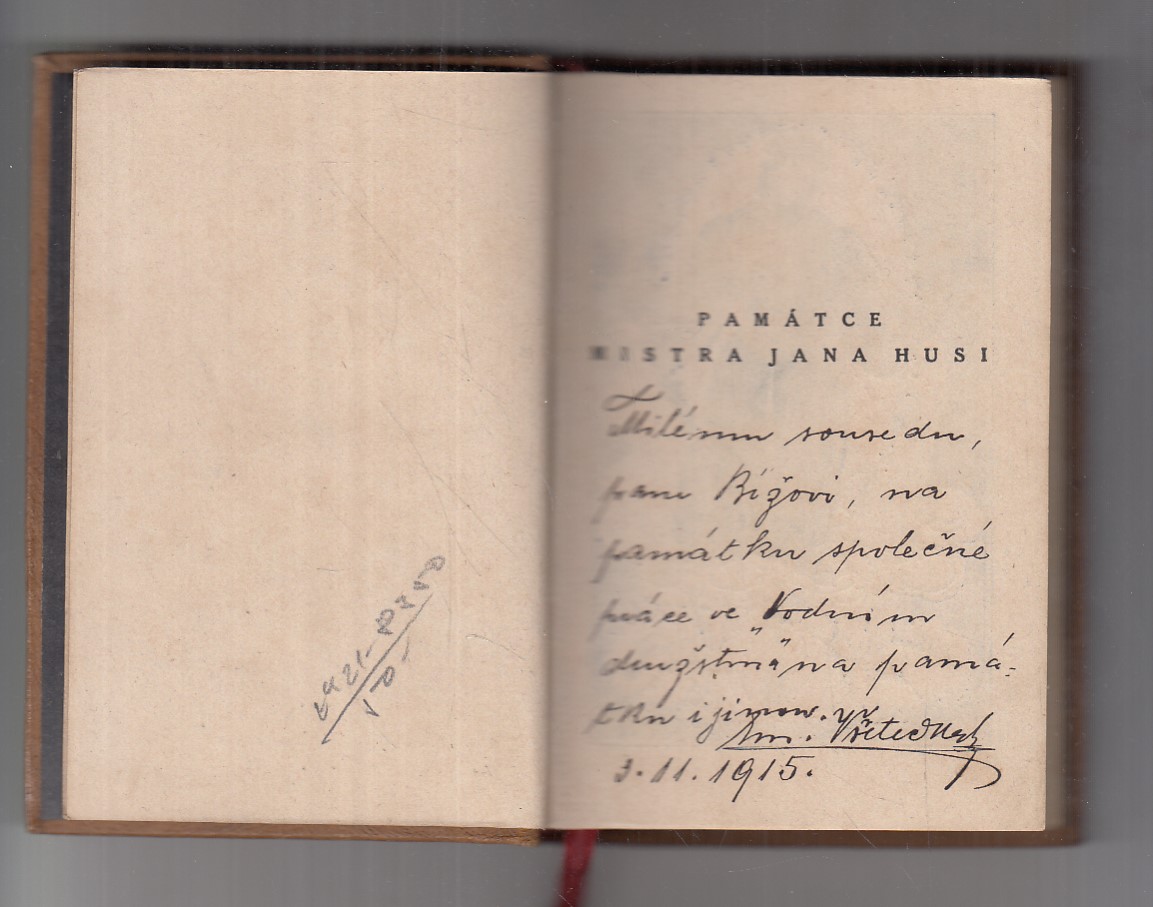 PAMÁTCE
MISTRA JANA HUSI
Milému sousedu,
panu Bížovi, na
památku společné
práce ve „Vodním
družstvu" na pamá-
tku i jinou.
Vřeteč
3.11.1915.
50